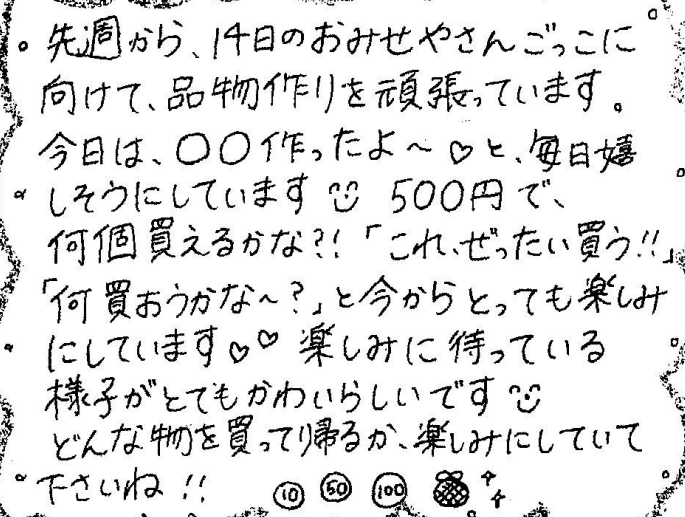 先週から、14日のおみせやさんごっこに
向けて、品物作りを頑張っています。
今日は、〇〇作ったよ～♡と、毎日嬉
しそうにしています 500円で、
何個買えるかな?!「これ、ぜったい買う!!」
「何買おうかな～?」と今からとっても楽しみ
にしています♡♡ 楽しみに待っている
様子がとてもかわいらしいです
どんな物を買って帰るか、楽しみにしていて
下さいね!! 10 50 100